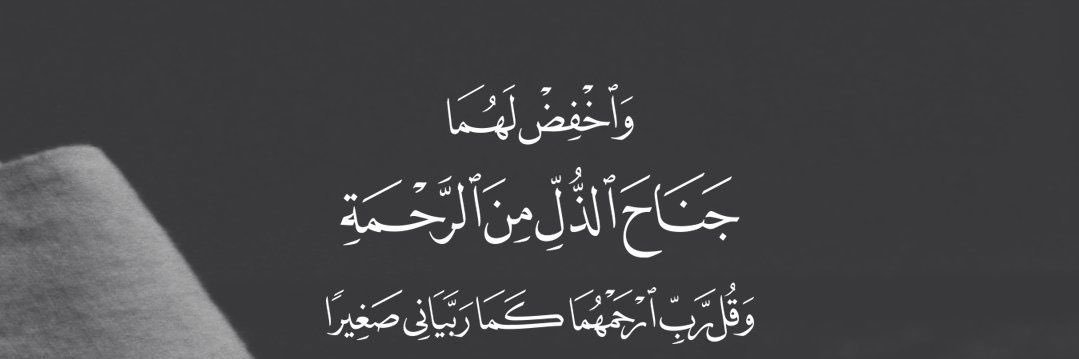 وَٱخْفِضْ لَهُمَا
جَنَاحَ ٱلذُّلِّ مِنَ ٱلرَّحْمَةِ
وَقُل رَّبِّ ٱرْحَمْهُمَا كَمَا رَبَّيَانِى صَغِيرًا